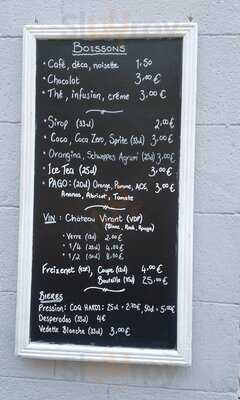 BOISSONS
• Café, déca, noisette 1.50
• Chocolat 3,00 €
• Thé, infusion, crème 3,00 €
• Sirop (33cl) 2,00 €
• Coca, Coca Zero, Sprite (33cl) 3,00 €
• Orangina, Schweppes Agrum (25cl) 3,00 €
• Ice Tea (25cl) 3,00 €
• PAGO: (20cl) Orange, Pomme, ACE, 3,00 €
Ananas, Abricot, Tomate
VIN : Château Virant (VDP)
(Blanc, Rosé, Rouge)
• Verre (12cl) 2.00 €
• 1/4 (25cl) 4.00 €
• 1/2 (50cl) 8.00 €
Freixenet Coupe (12cl) 4.00 €
Bouteille (75cl) 25.00 €
BIERES
Pression: COQ HARDI: 25cl = 2.70€, 50cl = 5.00€
Desperados (33cl) 4€
Vedette Blanche (33cl) 3,00 €